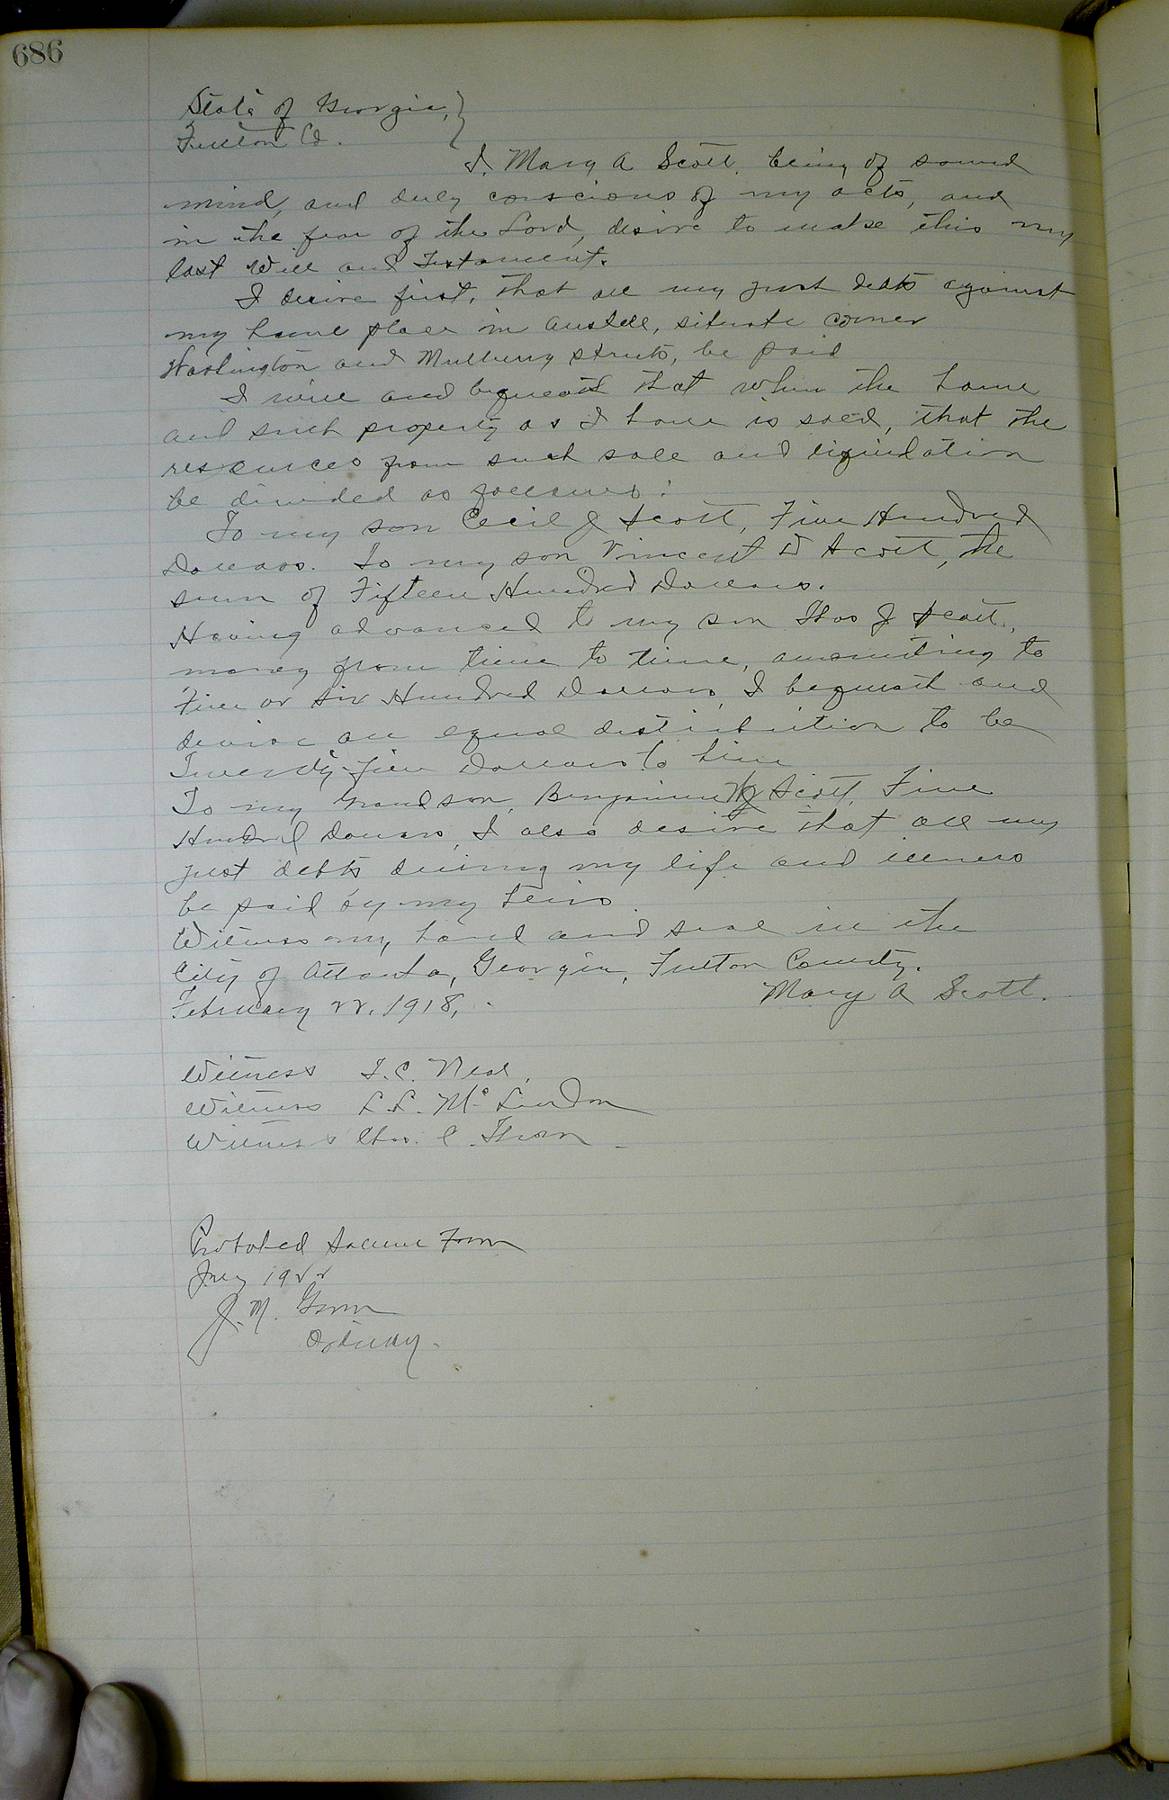 686
State of Georgia, }
Fulton Co.
I, Mary A Scott, being of sound
mind, and duly conscious of my acts, and
in the fear of the Lord, desire to make this my
last Will and Testament.
I desire first, that all my just debts against
my home place in Austell, situate corner
Washington and Mulberry streets, be paid
I will and bequeath that when the home
and such property as I have is sold, that the
resources from such sale and liquidation
be divided as follows:
To my son Cecil J Scott, Five Hundred
Dollars. To my son Vincent D Scott, the
sum of Fifteen Hundred Dollars.
Having advanced to my son Thos J Scott,
money from time to time, amounting to
Five or Six Hundred Dollars, I bequeath and
devise an equal distribution to be
Twenty-five Dollars to him
To my Grandson, Benjamin Scott, Five
Hundred Dollars, I also desire that all my
just debts during my life and illness
be paid by my heirs.
Witness my hand and seal in the
City of Atlanta, Georgia, Fulton County.
February 22, 1918,
Mary A Scott.
Witness T. C. Neal,
Witness L. L. McLendon
Witness Chas. C. Thorn
Probated Solemn Form
July 1922
J. M. Gann
Ordinary.